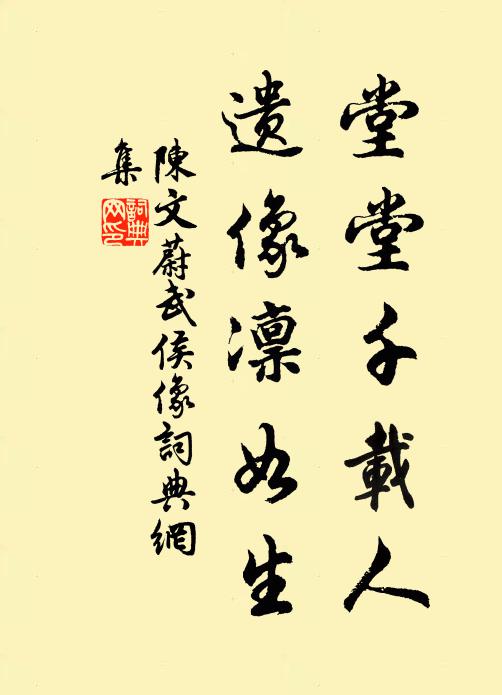 堂堂千載人
遺像凜如生
陳文蔚武侯像詞典網
集
詞典网印